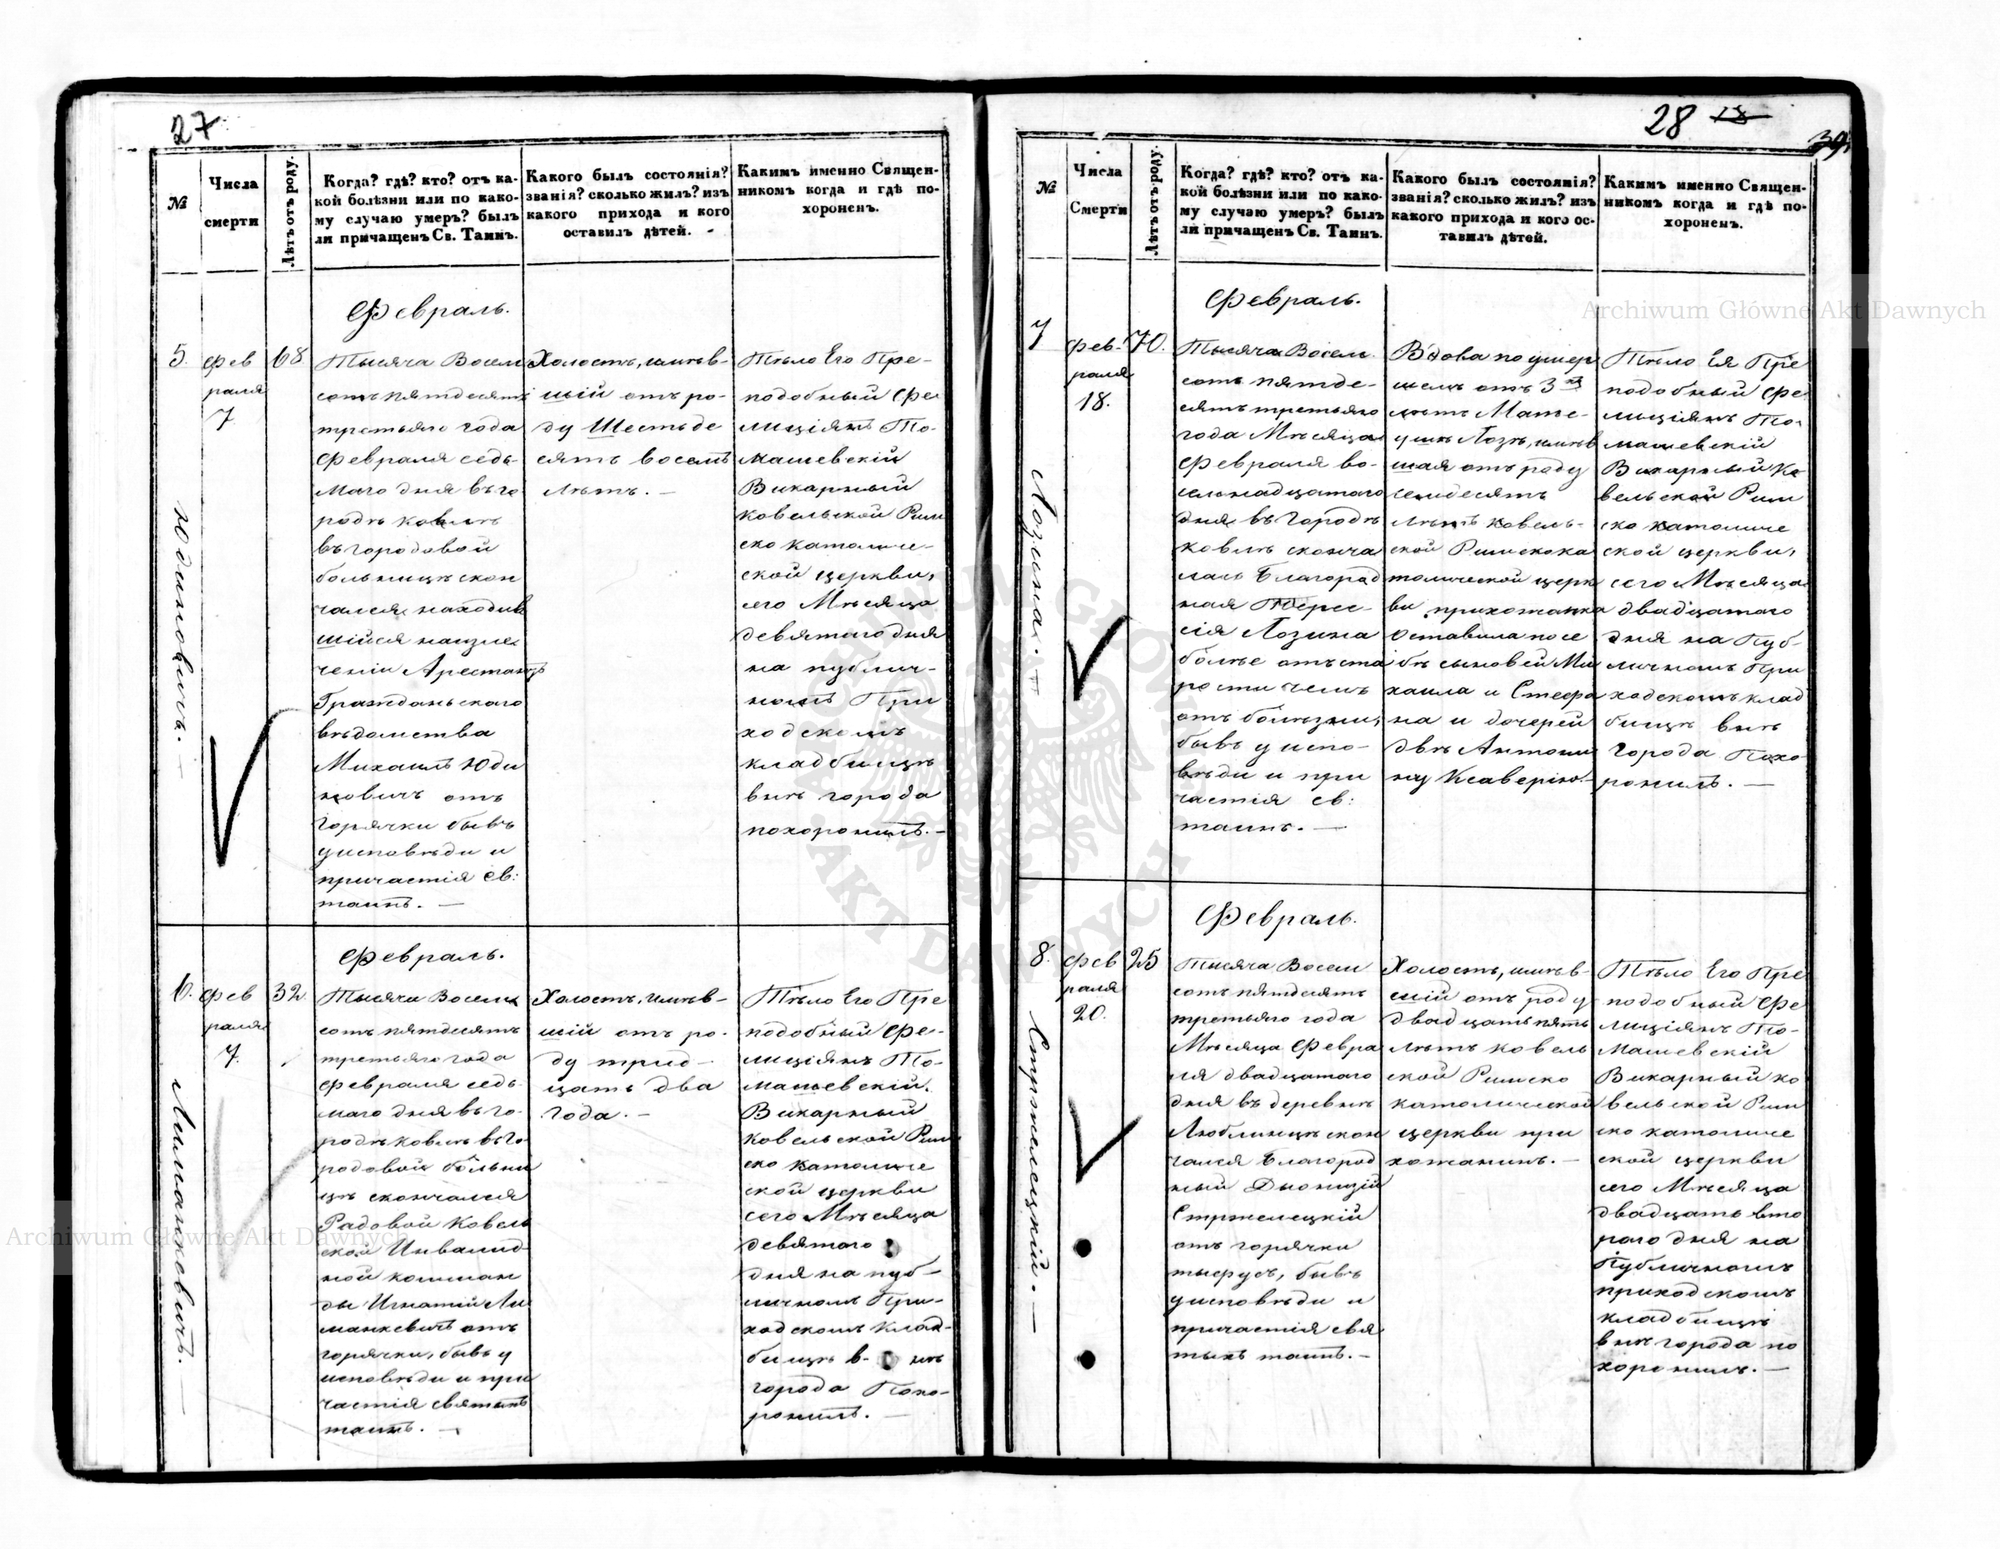 27
№
Числа
смерти
Лѣтъ отъ роду.
Когда? гдѣ? кто? отъ ка-
кой болѣзни или по како-
му случаю умеръ? былъ
ли причащенъ Св. Таинъ.
Какого былъ состоянія?
званія? сколько жилъ? изъ
какого прихода и кого
оставилъ дѣтей.
Какимъ именно Священ-
никомъ когда и гдѣ по-
хороненъ.
5.
Фев
раля
7
68
Юдиновичъ. —
Февраль.
Тысяча Восем
сотъ пятдесятъ
третьяго года
Февраля седь-
маго дня въ го
родѣ Ковлѣ
въ городовой
больницѣ скон
чался находив
шійся на изле
ченіи Арестантъ
Гражданьского
вѣдомства
Михаилъ Юди
новичъ отъ
горячки бывъ
у исповѣди и
причастія Св:
таинъ. —
Холостъ, имѣв-
шій отъ ро-
ду Шестьде
сятъ восемъ
лѣтъ. —
Тѣло Его Пре-
подобный Фе
лиціянъ То-
машевскій
Викарный
Ковельской Рим
ско католиче-
ской церкви,
сего Мѣсяца
девятого дня
на публич-
номъ При
ходскомъ
кладбищѣ
внѣ города
похоронилъ. —
6.
Фев
раля
7.
32
Лиманкевичъ. —
Февраль.
Тысяча Восем
сотъ пятдесятъ
третьяго года
Февраля седь-
маго дня въ го-
родѣ Ковлѣ въ го
родовой больни
цѣ скончался
Рядовой Ковель
ской Инвалид-
ной комман
ды Игнатій Ли
манкевичъ отъ
горячки, бывъ у
исповѣди и при
частія святыхъ
таинъ. —
Холостъ, имѣв-
шій отъ ро-
ду трид-
цать два
года. —
Тѣло Его Пре
подобный Фе-
лиціянъ То-
машевскій.
Викарный
Ковельской Рим
ско католиче
ской церкви
сего Мѣсяца
девятого
дня на пуб-
личномъ При-
ходскомъ Клад-
бищѣ в- нѣ
города Похо-
ронилъ. —
28 18
39
№
Числа
Смерти
Лѣтъ отъ роду.
Когда? гдѣ? кто? отъ ка-
кой болѣзни или по како-
му случаю умеръ? былъ
ли причащенъ Св. Таинъ.
Какого былъ состоянія?
званія? сколько жилъ? изъ
какого прихода и кого ос-
тавилъ дѣтей.
Какимъ именно Священ-
никомъ когда и гдѣ по-
хороненъ.
7
Фев-
раля
18.
70.
Лозина. —
Февраль.
Тысяча Восем
сотъ пятде-
сятъ третьяго
года Мѣсяца
Февраля во-
семнадцатого
дня въ городѣ
Ковлѣ сконча
лась Благород
ная Терес-
сія Лозина
болѣе отъ ста
рости чемъ
отъ болѣзни,
бывъ у испо-
вѣди и при
частія св:
таинъ. —
Вдова по умер
шемъ отъ 3хъ
лѣтъ Мате-
ушѣ Лозѣ, имѣв
шая отъ роду
семдесятъ
лѣтъ Ковель-
ской Римскока
толической церк
ви прихожанка
Оставила посе
бѣ сыновей Ми
хаила и Стефа
на и дочерей
двѣ Антони
ну Ксаверію. —
Тѣло Ея Пре
подобный Фе
лиціянъ То-
машевскій
Викарный Ко
вельской Рим
ско католиче
ской церкви,
сего Мѣсяца
двадцатого
дня на Пуб-
личномъ При
ходскомъ клад
бищѣ внѣ
города Похо-
ронилъ. —
8.
Фев
раля
20.
25
Стржелецкій. —
Февраль.
Тысяча Восем
сотъ пятдесятъ
третьяго года
Мѣсяца Февра
ля двадцатого
дня въ деревнѣ
Люблинцѣ скон
чался Благород
ный Дионизій
Стржелецкій
отъ горячки
тыфусъ, бывъ
у исповѣди и
причастія свя
тыхъ таинъ. —
Холостъ, имѣв-
шій отъ роду
двадцать пять
лѣтъ Ковель
ской Римско
католической
церкви при
хожанинъ. —
Тѣло Его Пре
подобный Фе
лиціянъ То-
машевскій
Викарный Ко
вельской Рим
ско католиче
ской церкви
сего Мѣсяца
двадцать вто
рого дня на
Публичномъ
приходскомъ
кладбищѣ
внѣ города по
хоронилъ. —
Archiwum Główne Akt Dawnych
Archiwum Główne Akt Dawnych
ARCHIWUM GŁÓWNE AKT DAWNYCH